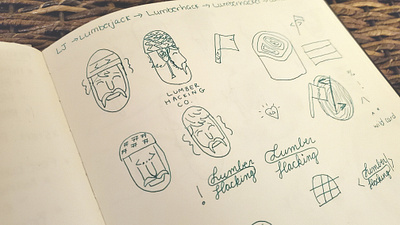 LJ → Lumberjack → Lumberhack → Lumberhacker
LUMBER
HACKING
CO.
Lumber
Hacking
Lumber
Hacking
Lumber
Hacking